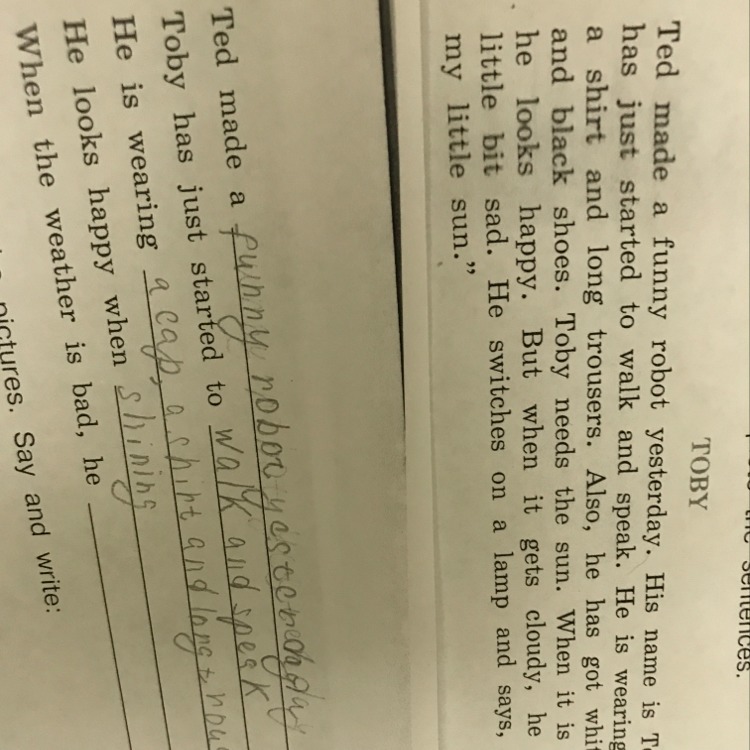 the sentences.
TOBY
Ted made a funny robot yesterday. His name is
has just started to walk and speak. He is wearing
a shirt and long trousers. Also, he has got
and black shoes. Toby needs the sun. When it is
he looks happy. But when it gets cloudy, he
little bit sad. He switches on a lamp and says,
my little sun.”
Ted made a funny robot yesterday
Toby has just started to walk and speak
He is wearing a cap, a shirt and long
He looks happy when shining
When the weather is bad, he
pictures. Say and write: